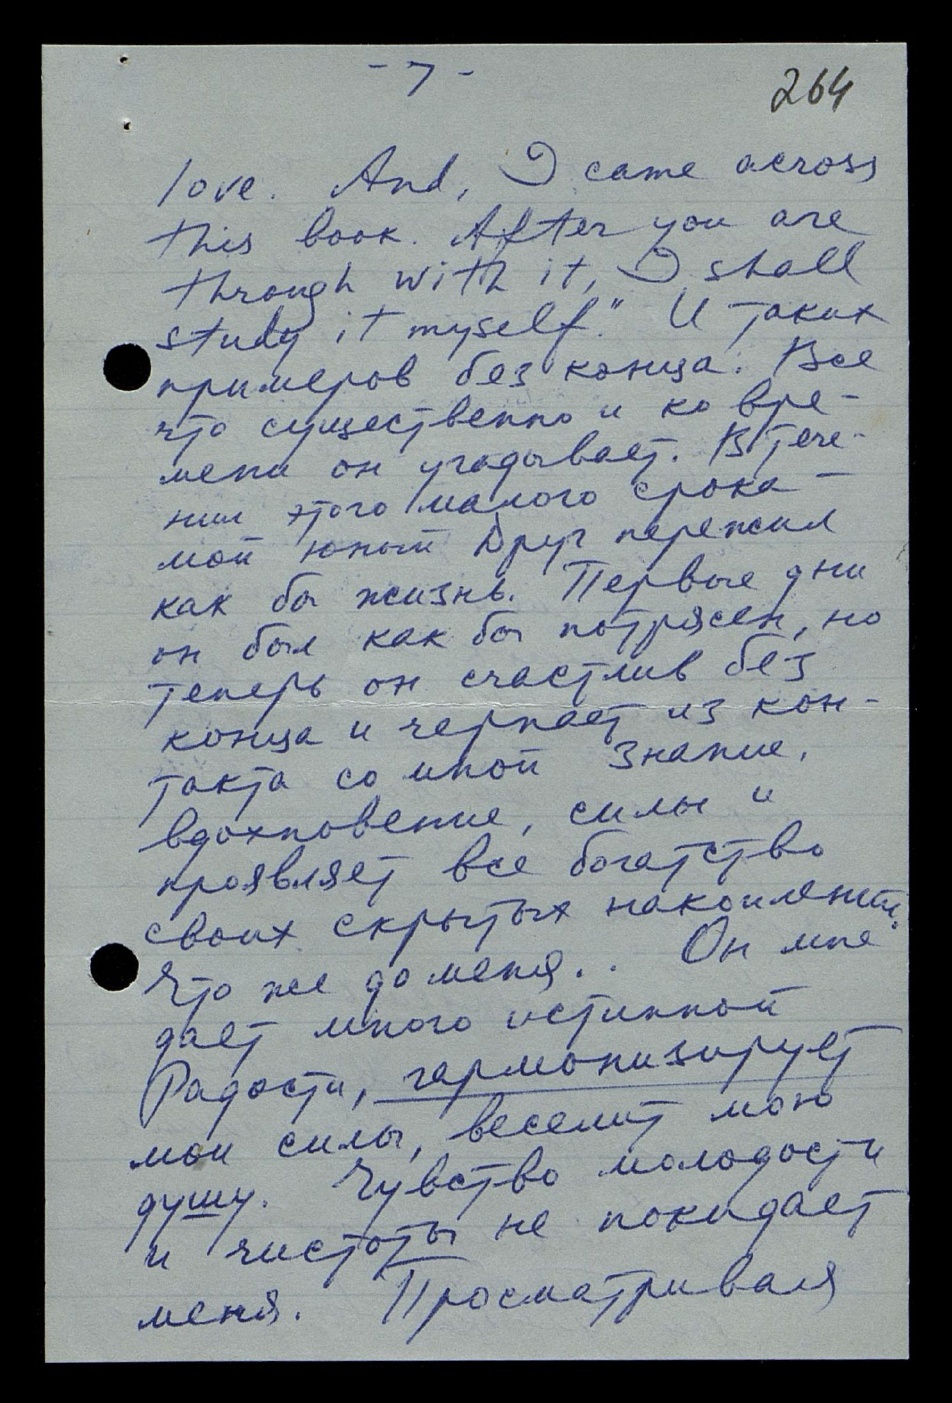 - 7 -
264
love. And, I came across
this book. After you are
through with it, I shall
study it myself." И таких
примеров без конца. Все
что существенно и ко вре-
мени он угадывает. В тече-
нии этого малого срока —
мой юный Друг пережил
как бы жизнь. Первые дни
он был как бы потрясен, но
теперь он счастлив без
конца и черпает из кон-
такта со мной знание,
вдохновение, силы и
проявляет все богатство
своих скрытых накоплений.
Что же до меня.. Он мне
дает много истинной
Радости, гармонизирует
мои силы, веселит мою
душу. Чувство молодости
и чистоты не покидает
меня. Просматривая